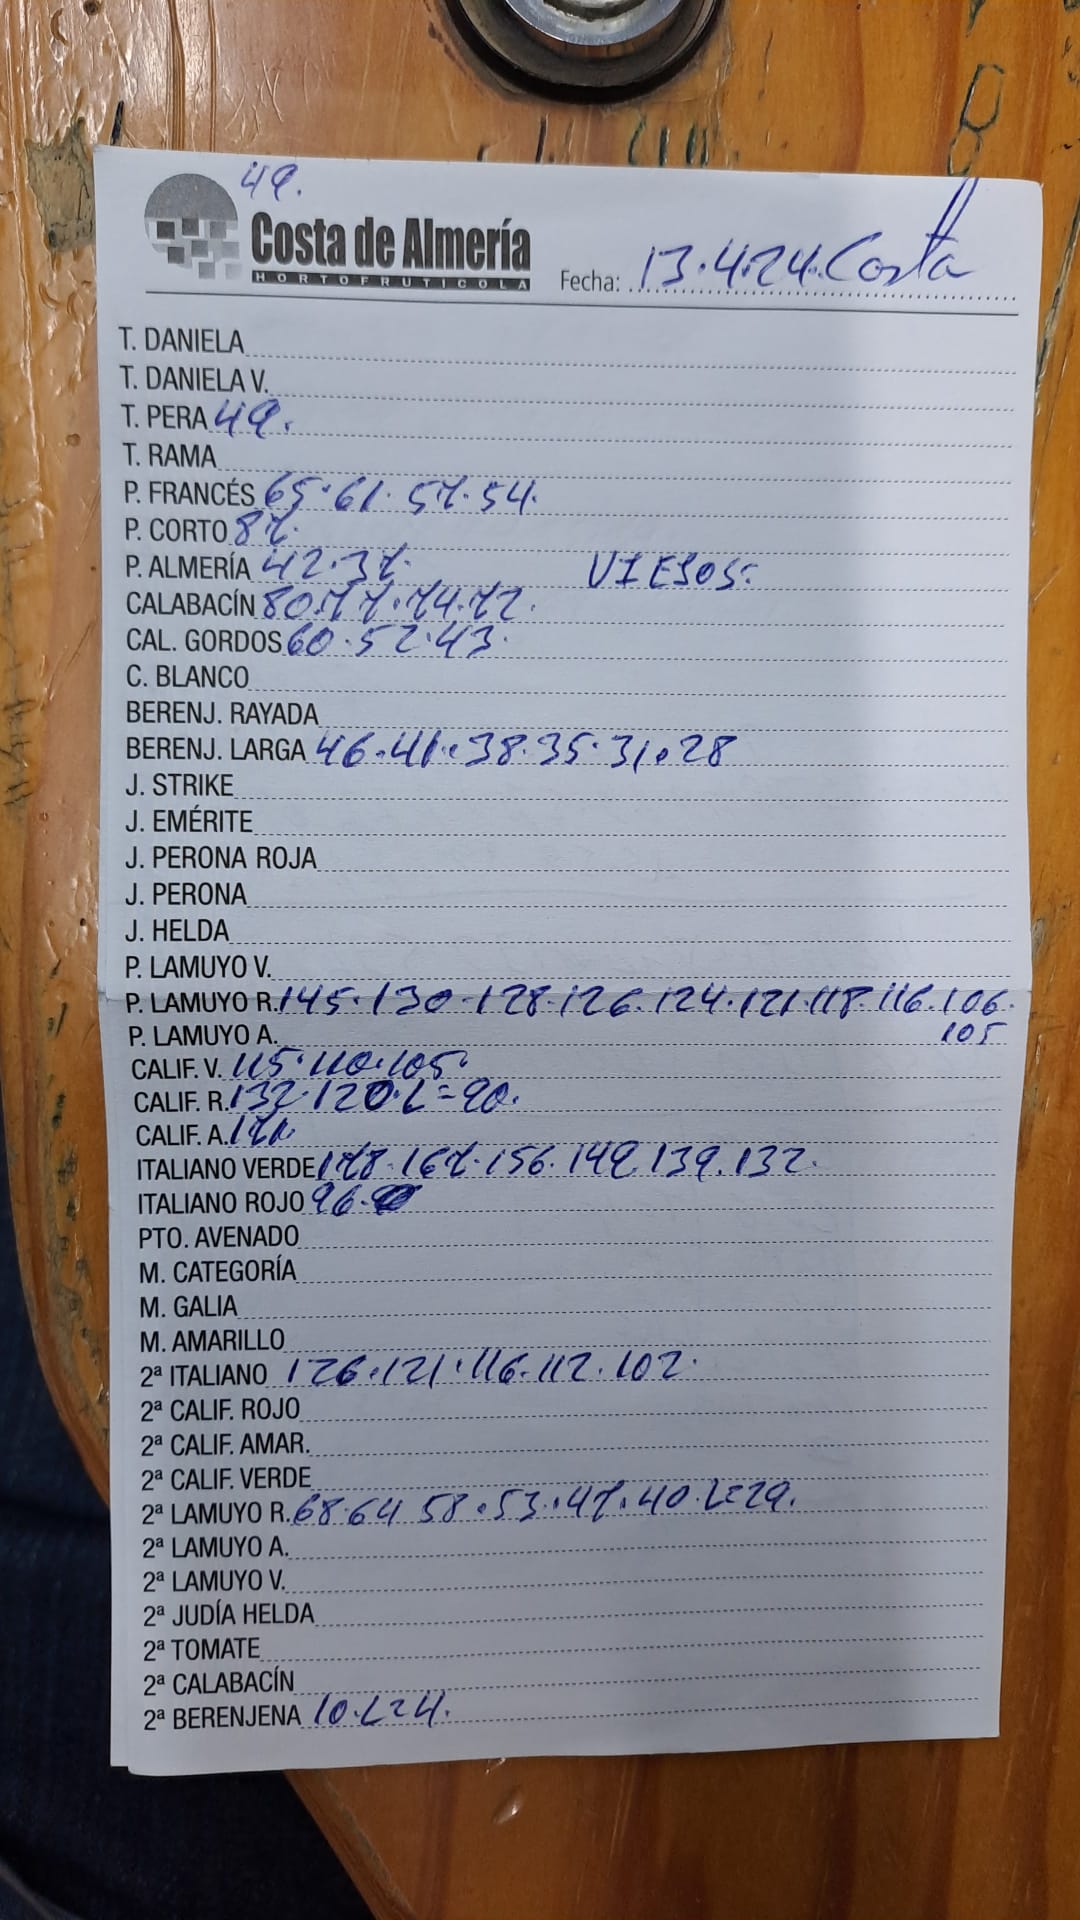 49.
Costa de Almería
HORTOFRUTICOLA
Fecha: 13.4.24. Costa
T. DANIELA
T. DANIELA V.
T. PERA 49.
T. RAMA
P. FRANCÉS 65.61.57.54.
P. CORTO 87.
P. ALMERÍA 42.37. VIEJOS:
CALABACÍN 80.77.74.72.
CAL. GORDOS 60.52.43.
C. BLANCO
BERENJ. RAYADA
BERENJ. LARGA 46.41.38.35.31.28
J. STRIKE
J. EMÉRITE
J. PERONA ROJA
J. PERONA
J. HELDA
P. LAMUYO V.
P. LAMUYO R. 145.130.128.126.124.121.118.116.106.
P. LAMUYO A. 105
CALIF. V. 115.110.105.
CALIF. R. 132.120.L=90.
CALIF. A. 171.
ITALIANO VERDE 178.167.156.149.139.132.
ITALIANO ROJO 96.
PTO. AVENADO
M. CATEGORÍA
M. GALIA
M. AMARILLO
2ª ITALIANO 126.121.116.112.102.
2ª CALIF. ROJO
2ª CALIF. AMAR.
2ª CALIF. VERDE
2ª LAMUYO R. 68.64 58.53.47.40.L=29.
2ª LAMUYO A.
2ª LAMUYO V.
2ª JUDÍA HELDA
2ª TOMATE
2ª CALABACÍN
2ª BERENJENA 10.L=4.